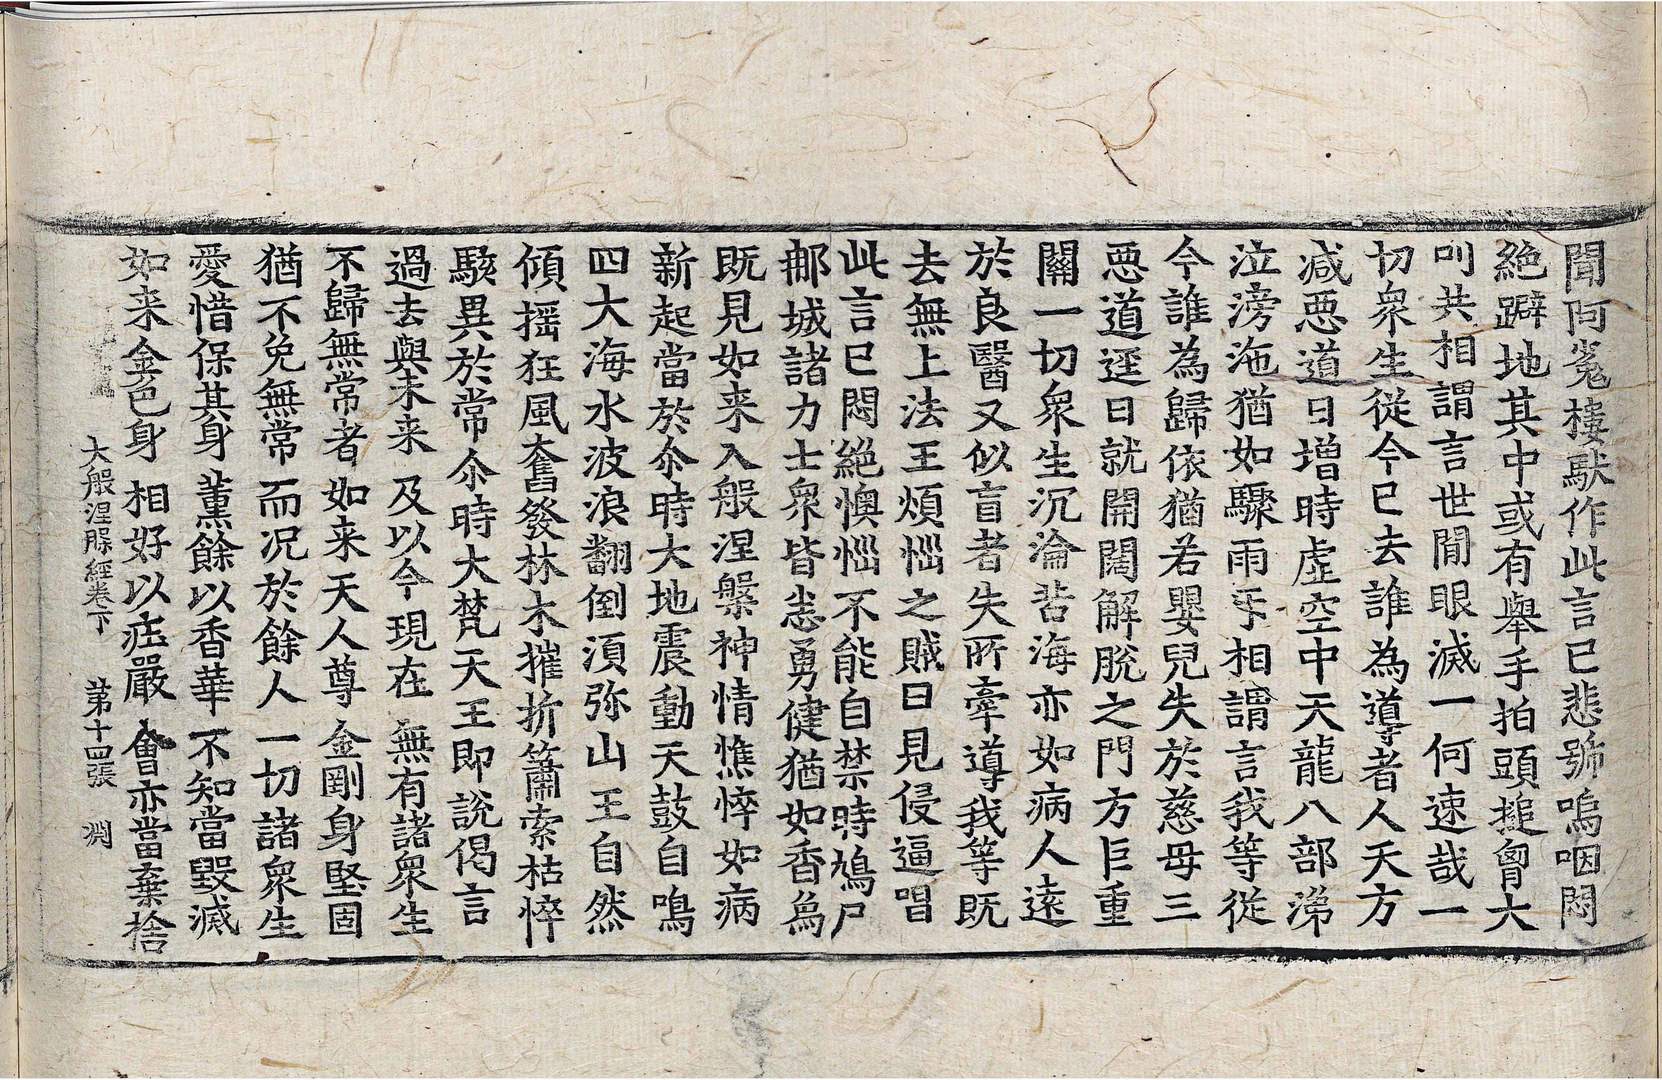 聞阿㝹樓馱作此言已悲號嗚咽悶
絶躃地其中或有舉手拍頭搥胷大
叫共相謂言世閒眼滅一何速哉一
切衆生從今已去誰為導者人天方
减惡道日增時虛空中天龍八部涕
泣滂沲猶如驟雨㸦相謂言我等從
今誰為歸依猶若嬰兒失於慈母三
惡道逕日就開闊解脫之門方巨重
關一切衆生沉淪苦海亦如病人遠
於良醫又似盲者失所牽導我等旣
去無上法王煩惱之賊日見侵逼唱
此言已悶絶懊惱不能自禁時鳩尸
那城諸力士衆皆悉勇健猶如香爲
旣見如来入般涅槃神情憔悴如病
新起當於尒時大地震動天鼓自鳴
四大海水波浪翻倒湏弥山王自然
傾摇狂風奮發林木摧折簫索枯悴
駭異於常尒時大梵天王即說偈言
過去與未来 及以今現在 無有諸衆生
不歸無常者 如来天人尊 金剛身堅固
猶不免無常 而况於餘人 一切諸衆生
愛惜保其身 薰餘以香華 不知當毀滅
如来金色身 相好以莊嚴 會亦當棄捨
大般涅槃經卷下 第十四張 淵